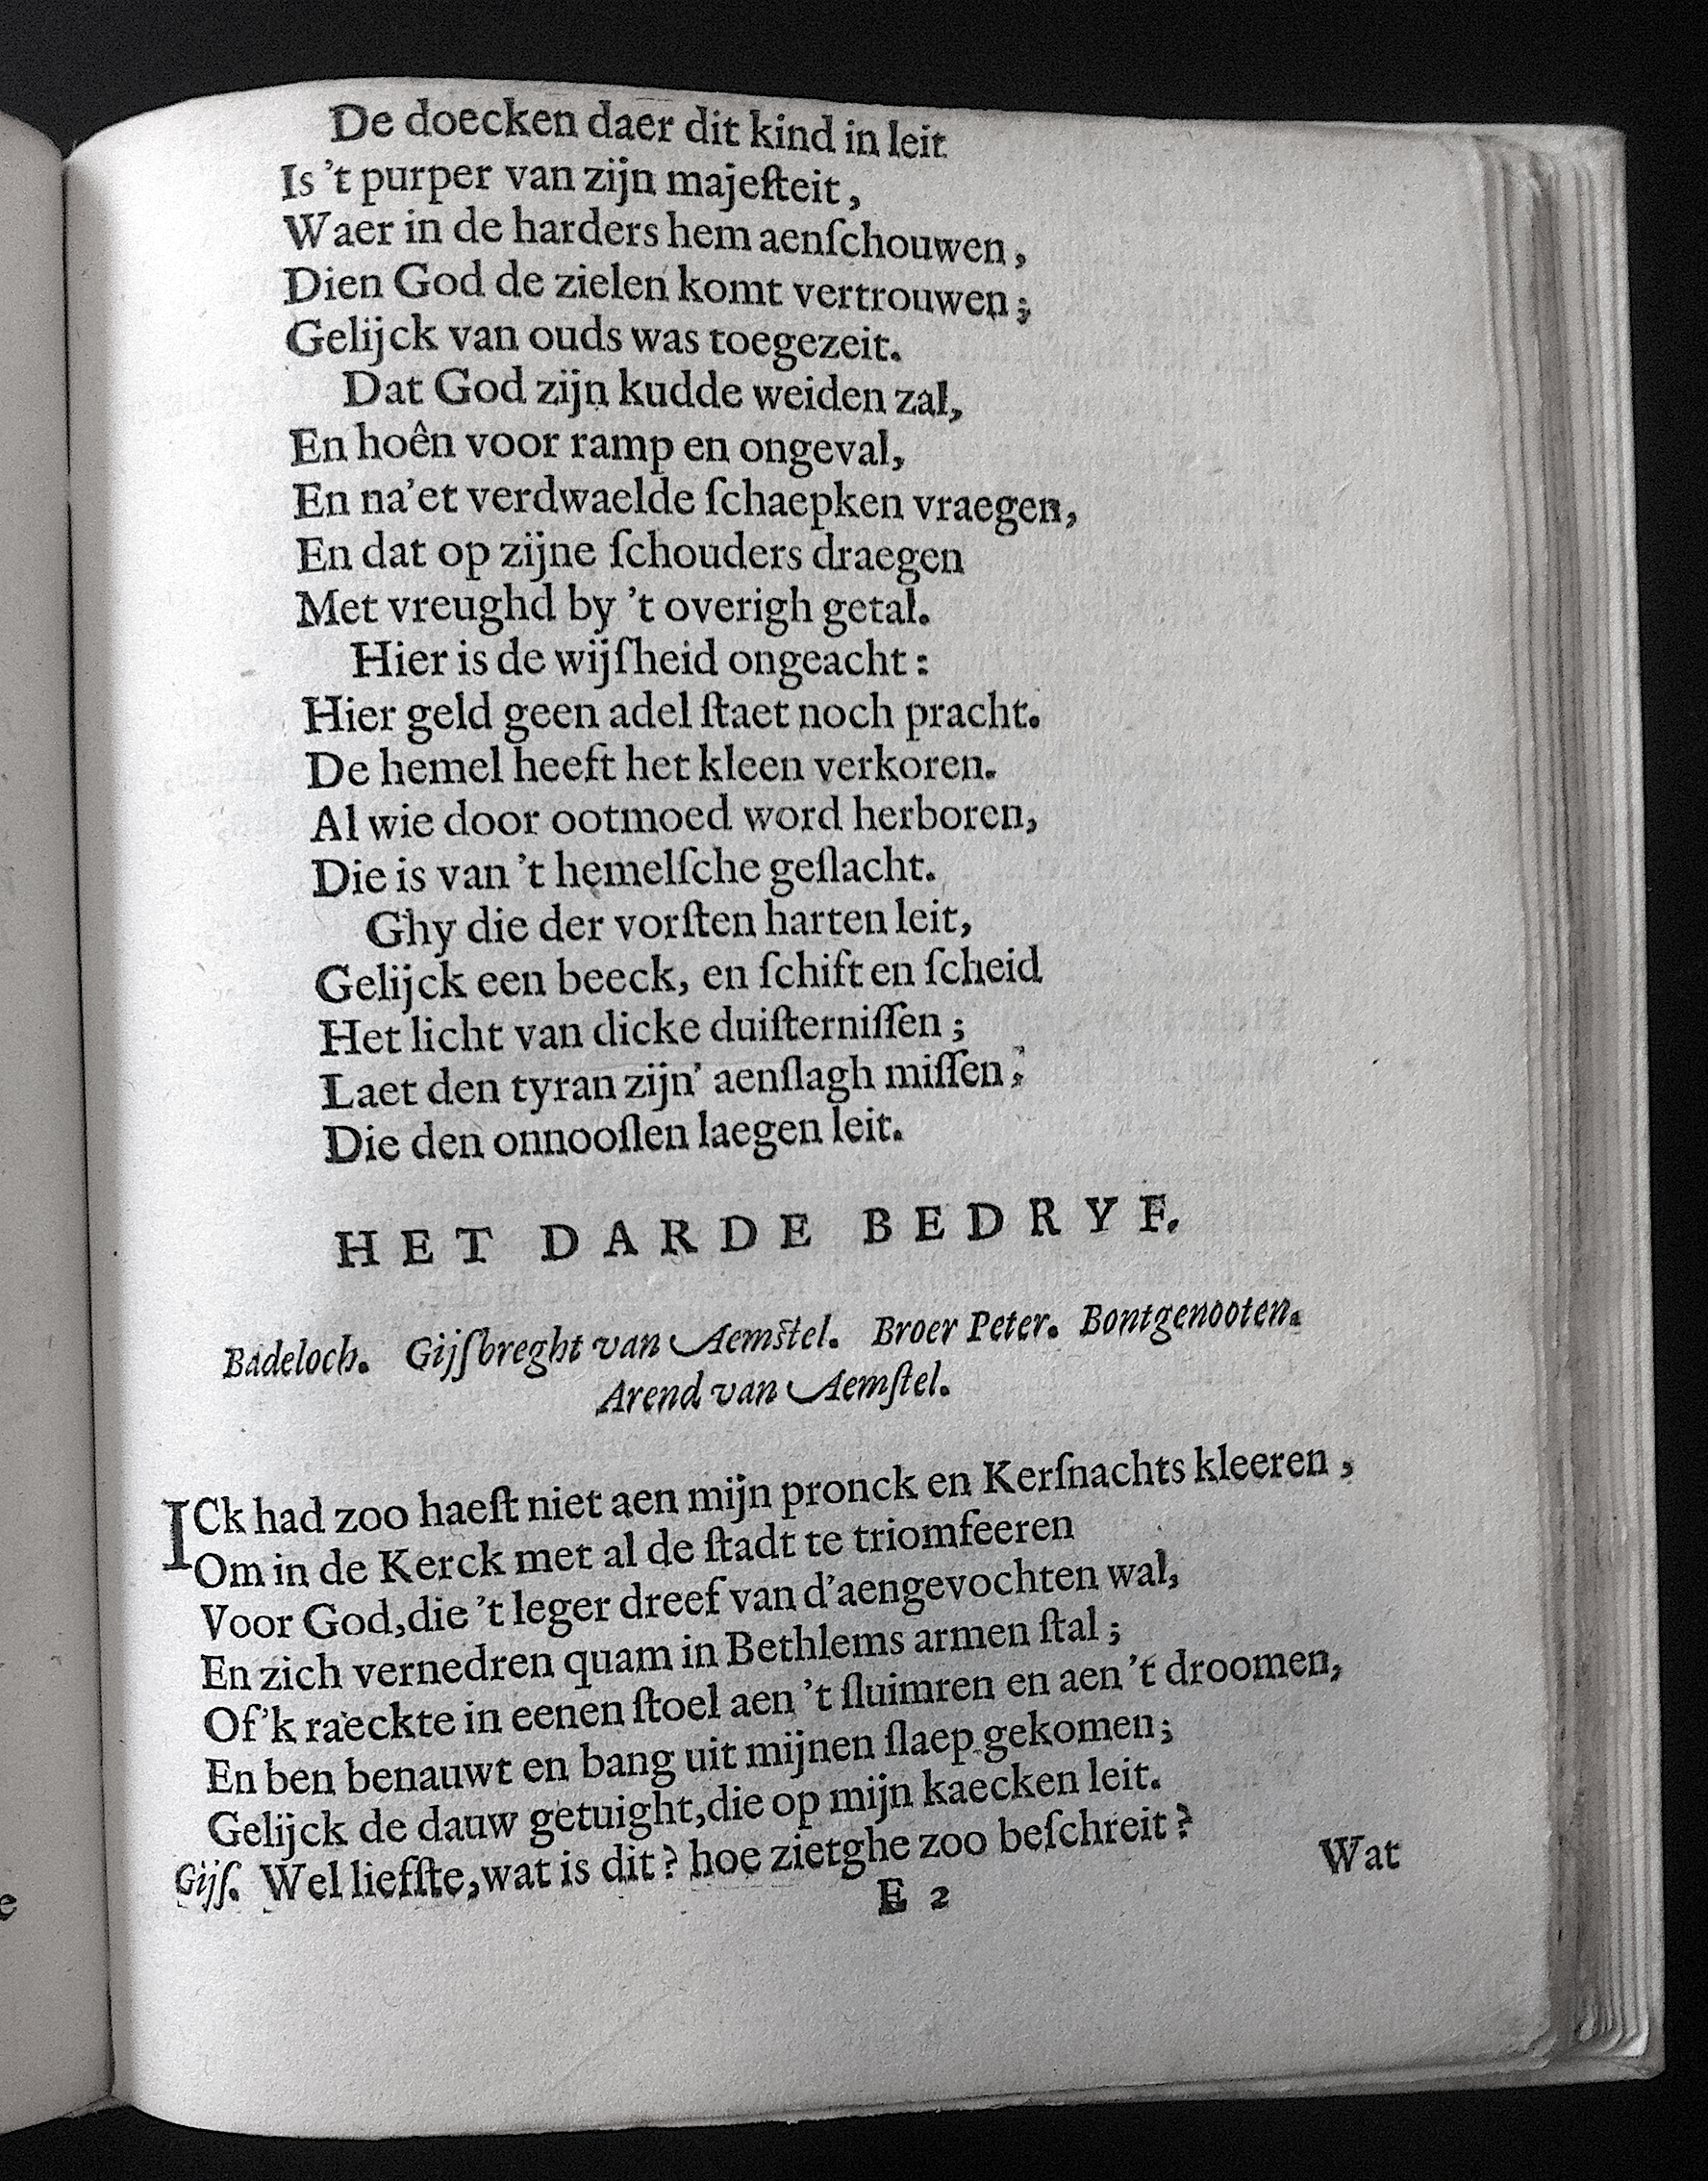 De doecken daer dit kind in leit
Is 't purper van zijn majeſteit,
Waer in de harders hem aenſchouwen,
Dien God de zielen komt vertrouwen;
Gelijck van ouds was toegezeit.
Dat God zijn kudde weiden zal,
En hoên voor ramp en ongeval,
En na'et verdwaelde ſchaepken vraegen,
En dat op zijne ſchouders draegen
Met vreughd by 't overigh getal.
Hier is de wijſheid ongeacht:
Hier geld geen adel ſtaet noch pracht.
De hemel heeft het kleen verkoren.
Al wie door ootmoed word herboren,
Die is van 't hemelſche geſlacht.
Ghy die der vorſten harten leit,
Gelijck een beeck, en ſchift en ſcheid
Het licht van dicke duiſterniſſen;
Laet den tyran zijn' aenſlagh miſſen;
Die den onnooſlen laegen leit.
HET DARDE BEDRYF.
Badeloch. Gijſbreght van Aemſtel. Broer Peter. Bontgenooten.
Arend van Aemſtel.
ICk had zoo haeſt niet aen mijn pronck en Kerſnachts kleeren,
Om in de Kerck met al de ſtadt te triomfeeren
Voor God, die 't leger dreef van d'aengevochten wal,
En zich vernedren quam in Bethlems armen ſtal;
Of'k raeckte in eenen ſtoel aen 't ſluimren en aen 't droomen,
En ben benauwt en bang uit mijnen ſlaep gekomen;
Gelijck de dauw getuight, die op mijn kaecken leit.
Gijſ. Wel liefſte, wat is dit? hoe zietghe zoo beſchreit?
Wat
E 2
e